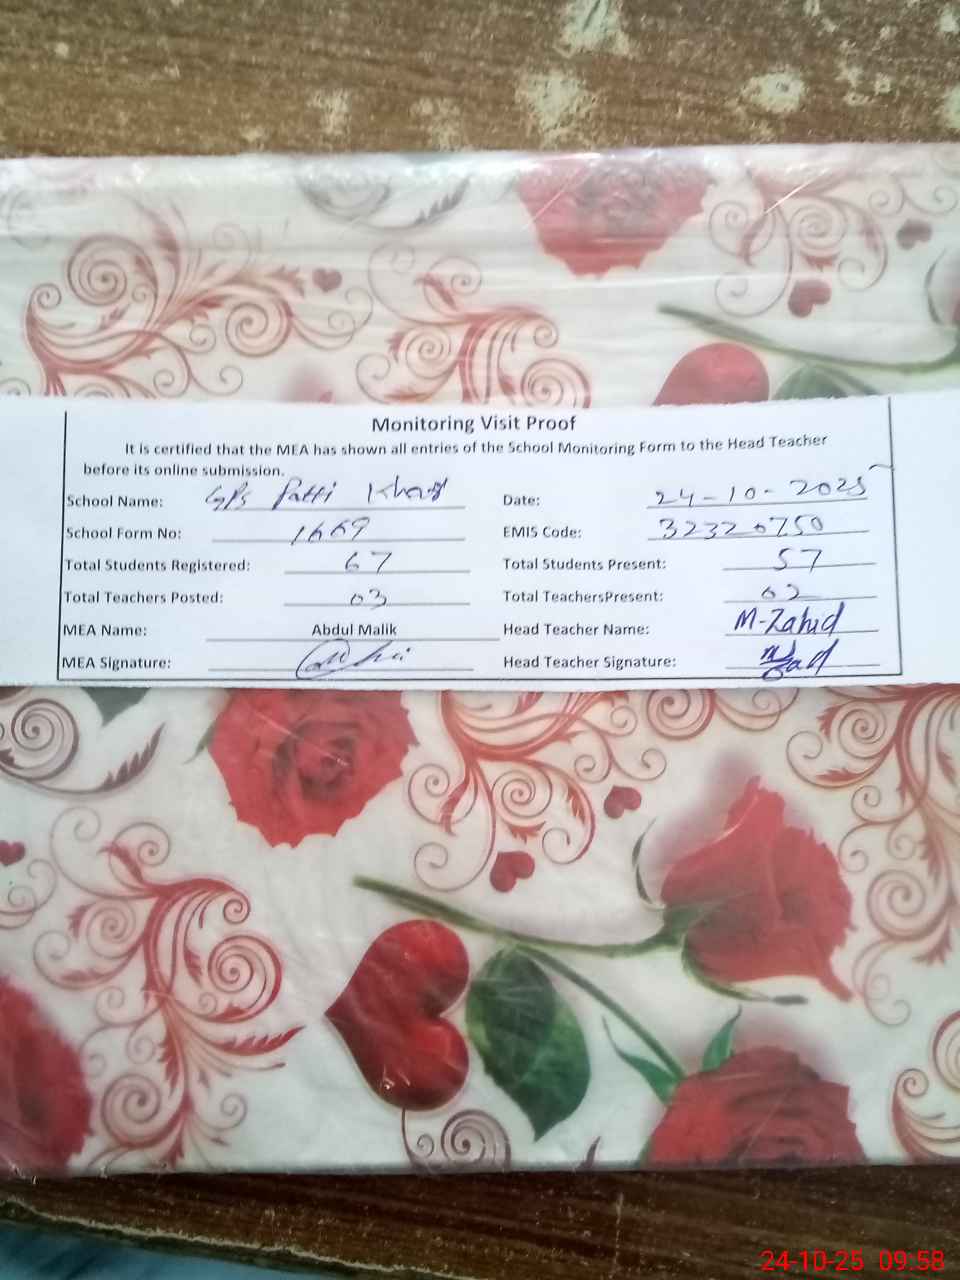 Monitoring Visit Proof
It is certified that the MEA has shown all entries of the School Monitoring Form to the Head Teacher
before its online submission.
School Name: GPS Patti Date: 24-10-2025
School Form No: 1669 EMIS Code: 32320750
Total Students Registered: 67 Total Students Present: 57
Total Teachers Posted: 03 Total TeachersPresent: 02
MEA Name: Abdul Malik Head Teacher Name: M-Zahid
MEA Signature: Head Teacher Signature:
24-10-25 09:58